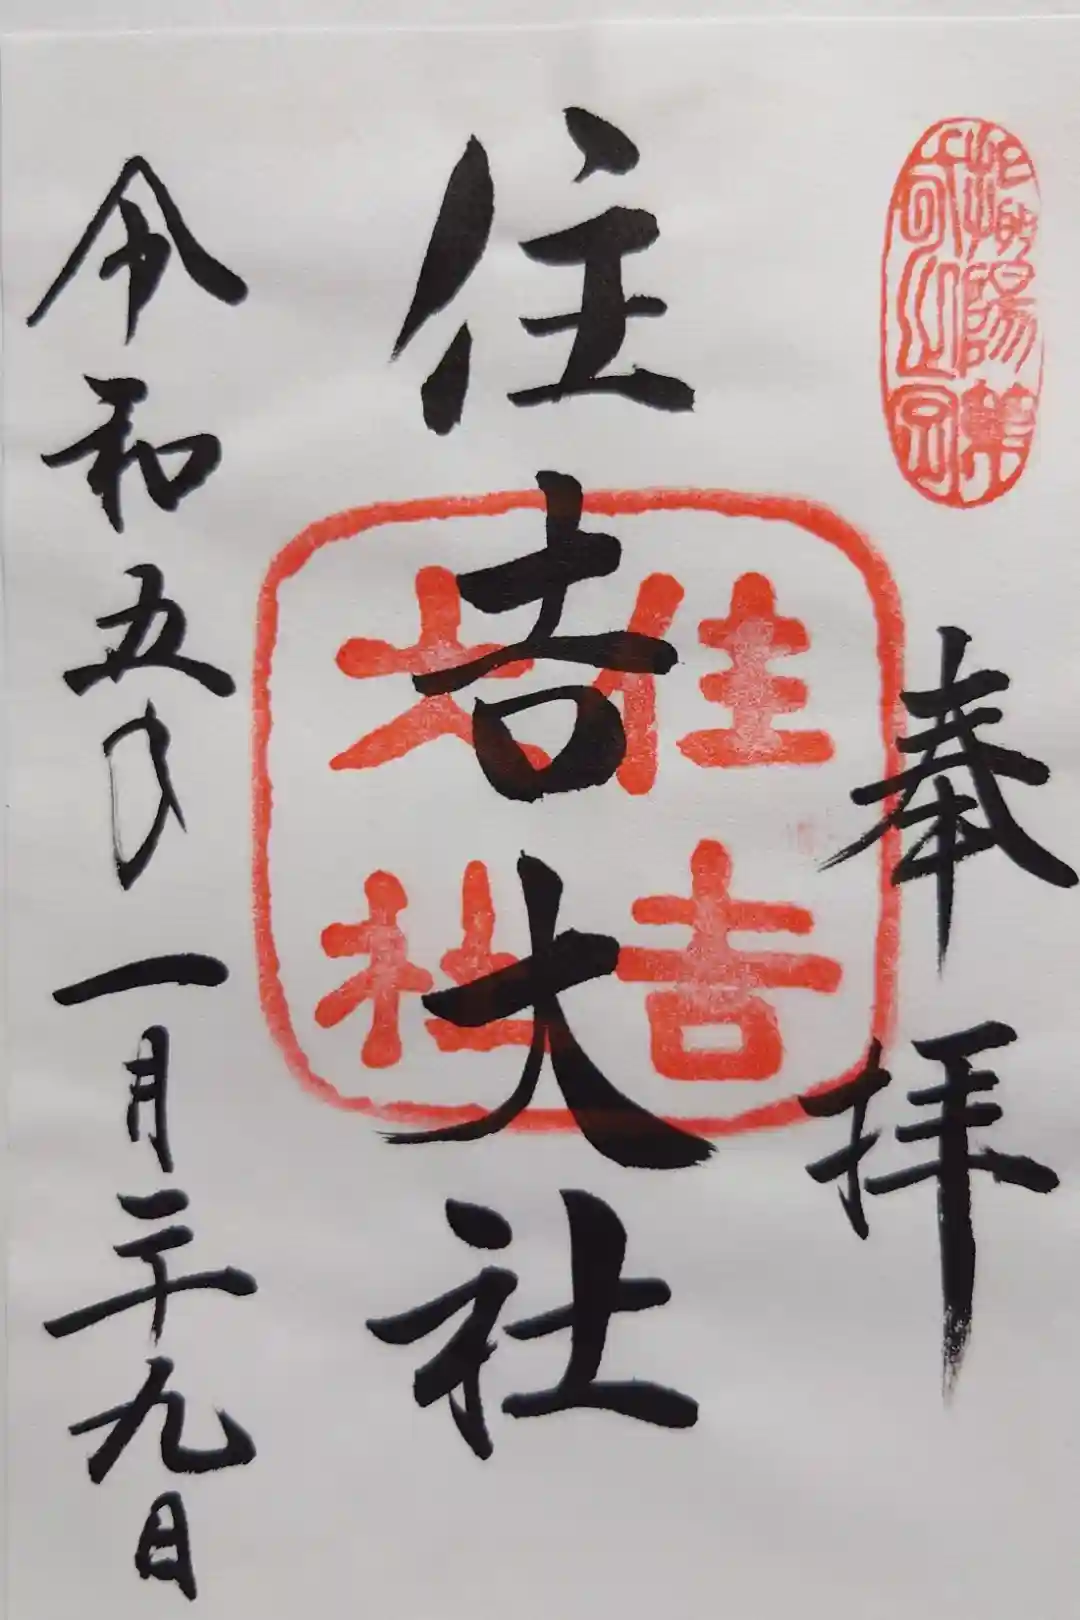 奉拝
住吉大社
住吉大社
令和五年一月二十九日